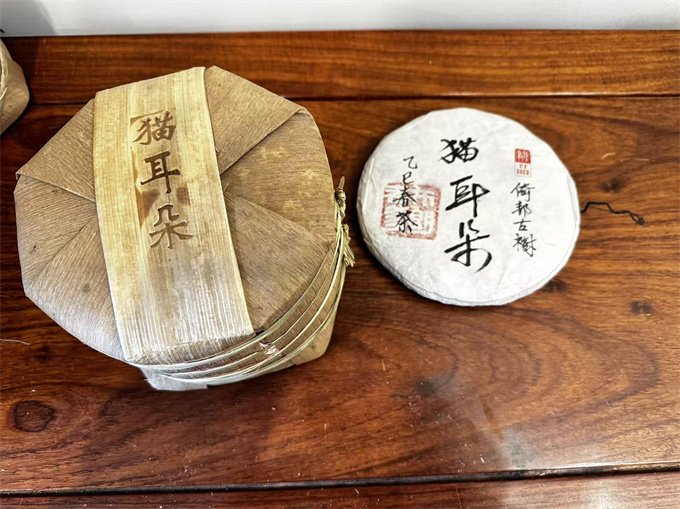 猫耳朵
倚邦古樹
猫耳朵
乙巳春茶